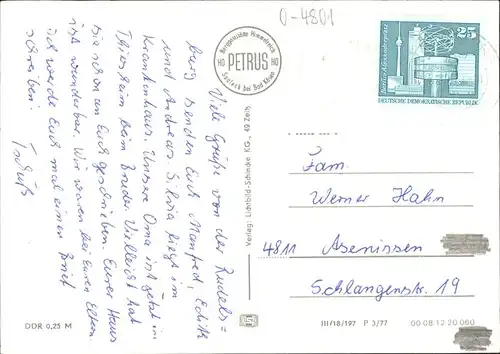 0-4801
Berggaststätte Himmelreich
HO PETRUS HO
Saaleck bei Bad Kösen
25
DEUTSCHE DEMOKRATISCHE REPUBLIK
Viele Grüße von der Rudels=
burg senden Euch Manfred, Edith
und Andreas. Silvia liegt im
Krankenhaus. Unsere Oma ist jetzt in
beim Bruder. Vielleicht hat
sie schon an Euch geschrieben. Euer Haus
ist wunderbar. Wir waren bei Euren Eltern.
Ich werde Euch mal einen Brief
schreiben.
Verlag: Lichtbild-Schincke KG · 49 Zeitz
Fam.
Werner Hahn
4811 Asenissen
Schlangenstr. 19
DDR 0,25 M
III/18/197 P 3/77 00 08 12 20 060